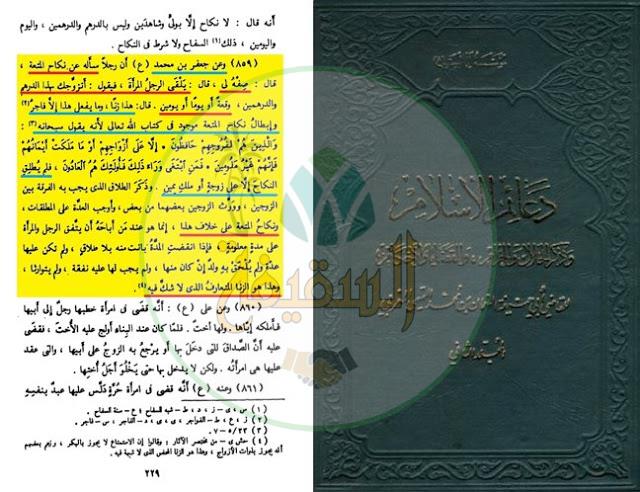 أنه قال : لا نكاح إلّا بوليٍّ وشاهدَين وليس بالدرهم والدرهمين ، واليوم
واليومين ، ذلك(١) السفاح ولا شرط فى النكاح .
(٨٥٩) وعن جعفر بن محمد (ع) أن رجلاً سأله عن نكاح المتعة
قال : صِفْهُ لى ، قال : يَلْقَى الرجلُ المرأةَ ، فيقول : أتزوّجك بهذا الدرهم
والدرهمين ، وقعةً أو يومًا أو يومين . قال: هذا زنًا، وما يفعل هذا إلّا فاجرٌ(٢)
وإبطالُ نكاح المتعة موجود فى كتاب الله تعالى لأنه يقول سبحانه(٣):
وَالَّذِينَ هُمْ لِفُرُوجِهِمْ حَافِظُونَ * إِلَّا عَلَى أَزْوَاجِهِمْ أَوْ مَا مَلَكَتْ أَيْمَانُهُمْ
فَإِنَّهُمْ غَيْرُ مَلُومِينَ * فَمَنِ ابْتَغَى وَرَاءَ ذَلِكَ فَأُولَئِكَ هُمُ الْعَادُونَ ، فلم يُطلِق
النكاحَ إلّا على زوجةٍ أو ملكِ يمينٍ . وذَكَرَ الطلاقَ الذى يجب به الفرقة بين
الزوجين ، وورّث الزوجين بعضهما من بعض ، وأوجب العدّة على المطلقات ،
ونكاحُ المتعة على خلاف هذا ، إنما هو عند من أباحَهُ أن يتّفق الرجل والمرأة
على مدةٍ معلومةٍ ، فإذا انقضت المدّة بانت منه بلا طلاقٍ ، ولم تكن عليها
عدة ولم يُلْحَق به ولدٌ إن كان منها ، ولم يجب لها عليه نفقة ، ولم يتوارثا ،
وهذا هو الزنا المتعارف الذى لا شك فيه(٤)
(٨٦٠) وعن على (ع) : أنّه قضى فى امرأة خطبها رجلٌ إلى أبيها
فأملكه إيّاها . ولها أخت . فلمّا كان عند البناء أولج عليه الأُخت ، فقضى
عليه أنّ الصداقَ للتى دخل بها أو يرْجعُ به الزوجُ على أبيها ، والتى عقد
عليها هى امرأتُه . ولكن لا يدخل بها حتى يَخْلُوَ أجلُ أُختها .
(٨٦١) وعنه (ع) أنّه قضى فى امرأةٍ حُرّةٍ دَلَّس عليها عبدٌ بنفسِهِ
(١) س ، ى ــ ز ، د ، ط ــ شبه السفاح ع ــ سنة السفاح .
(٢) ز ، ع ، ط ــ الفواجر ، ى ، د ــ الفاجر ، س ــ فاجر .
(٣) ٢٣/٥-٧ .
٢٢٩
السقيفة
دعائم الإسلام